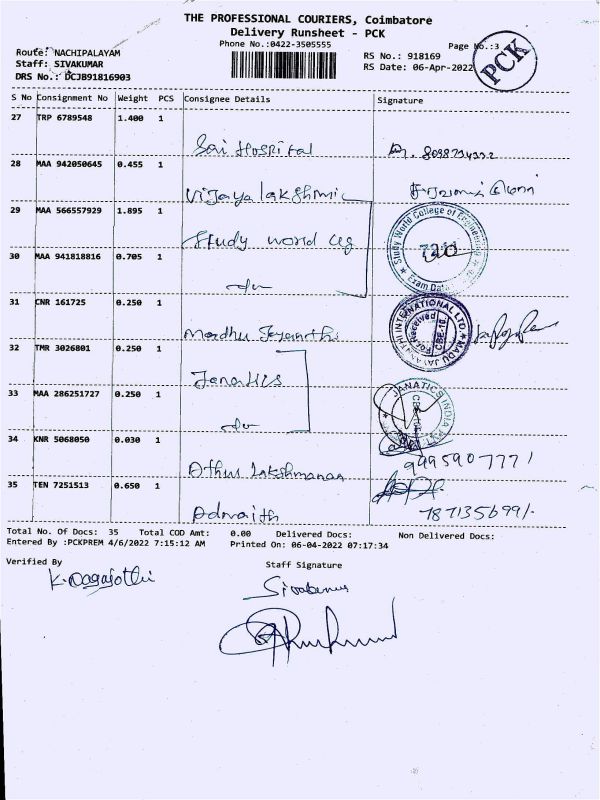 THE PROFESSIONAL COURIERS, Coimbatore
Delivery Runsheet - PCK
Phone No.:0422-3505555
Page No.:3
PCK
Route: NACHIPALAYAM
Staff: SIVAKUMAR
DRS No.: DCJB91816903
RS No.: 918169
RS Date: 06-Apr-2022
S No Consignment No Weight PCS Consignee Details Signature
27 TRP 6789548 1.400 1
Sai Hospital
28 MAA 942050645 0.455 1
Vijaya lakshmi
29 MAA 566557929 1.895 1
Study World College of Engineering
Exam Data
Study world clg
30 MAA 941818816 0.705 1
do
31 CNR 161725 0.250 1
MADU JAYANTHI INTERNATIONAL LTD
Received
CBE-10
Madhu Jayanthi
32 TMR 3026801 0.250 1
Janatics
33 MAA 286251727 0.250 1
JANATICS INDIA
do
34 KNR 5068050 0.030 1
Athul Lakshmanan 9995907771
35 TEN 7251513 0.650 1
Adwaith 787135699/-
Total No. Of Docs: 35 Total COD Amt: 0.00 Delivered Docs: Non Delivered Docs:
Entered By :PCKPREM 4/6/2022 7:15:12 AM Printed On: 06-04-2022 07:17:34
Verified By Staff Signature
K. Nagajothi